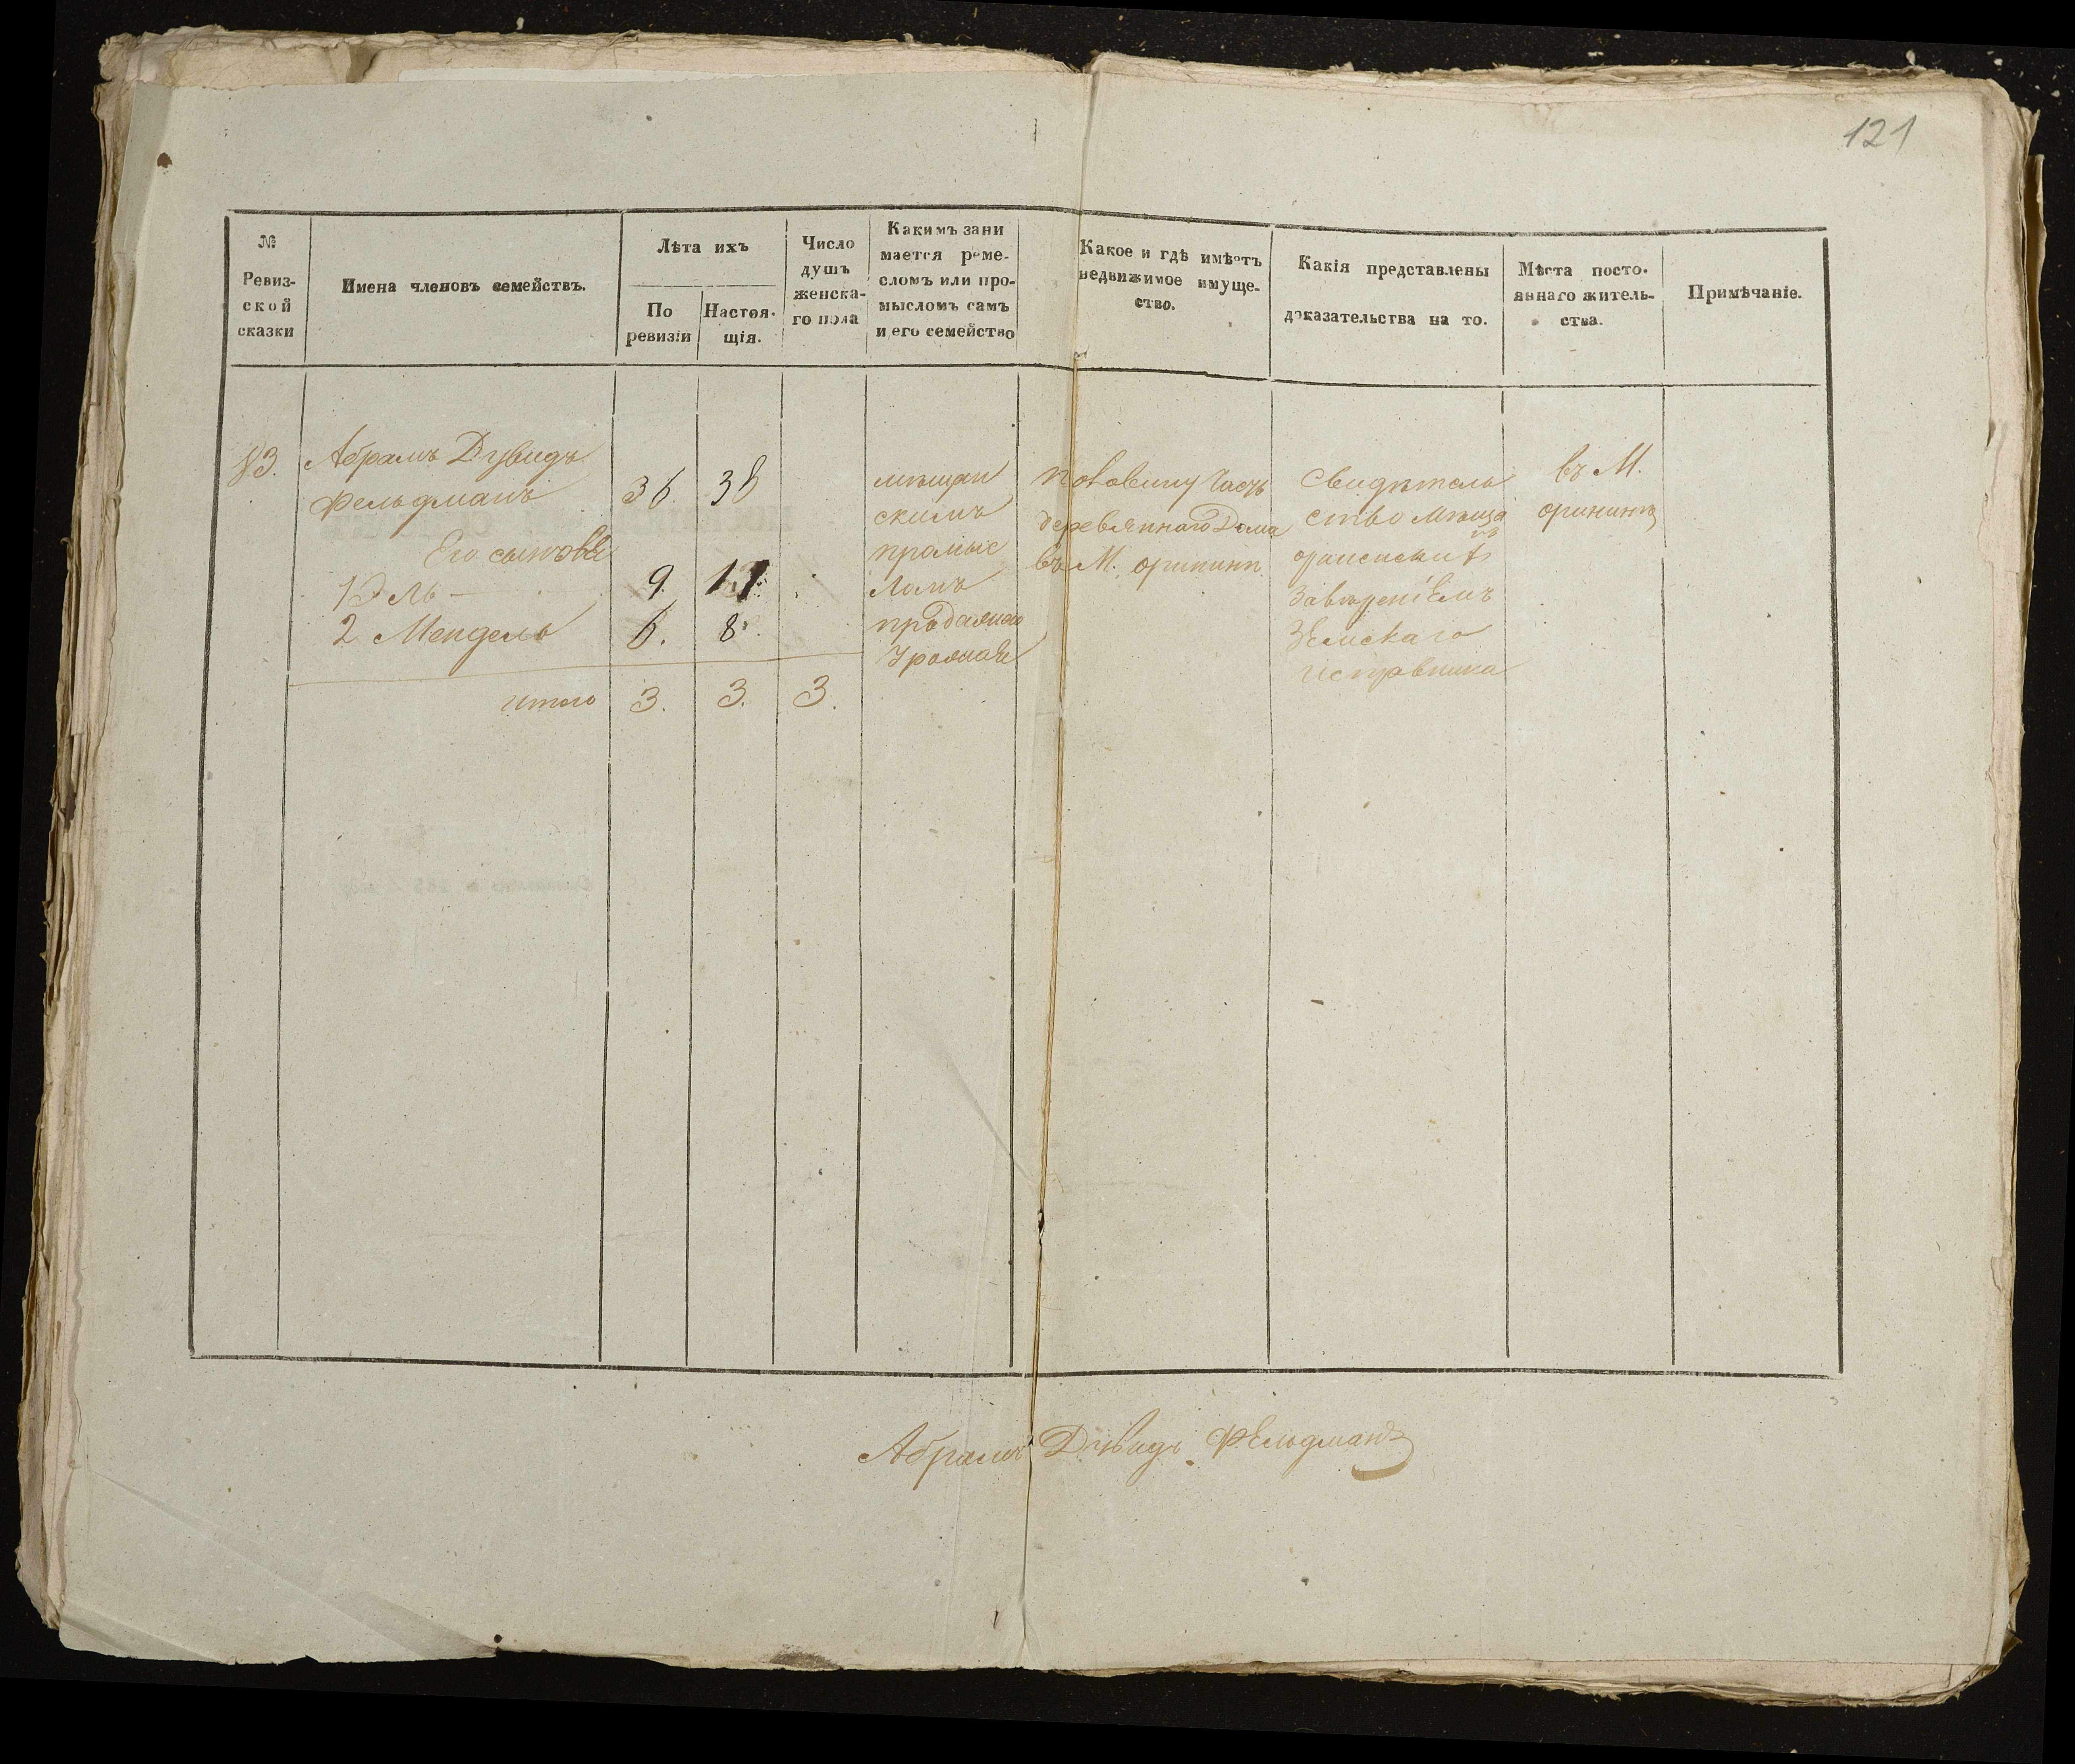 121
№
Ревиз-
ской
сказки
Имена членовъ семействъ.
Лѣта ихъ
По
ревизіи
Настоя-
щія.
Число
душъ
женска-
го пола
Какимъ зани
мается реме-
сломъ или про-
мысломъ самъ
и его семейство
Какое и гдѣ имѣетъ
недвижимое имуще-
ство.
Какія представлены
доказательства на то.
Мѣста посто-
яннаго житель-
ства.
Примѣчаніе.
Абрамъ Дувидъ
Фельдманъ
36. 38
Его сыновья
1 Эль 9. 11
2 Мендель 6. 8.
итого 3. 3. 3.
мѣщан
скимъ
промыс
ломъ
продажею
половину часть
деревяннаго Дома
въ М. оринин
Свидѣтель
ство мѣща
нъ
оринскихъ
завѣреніемъ
Земскаго
исправника
въ М.
орининѣ
Абрамъ Дувидъ Фельдманъ